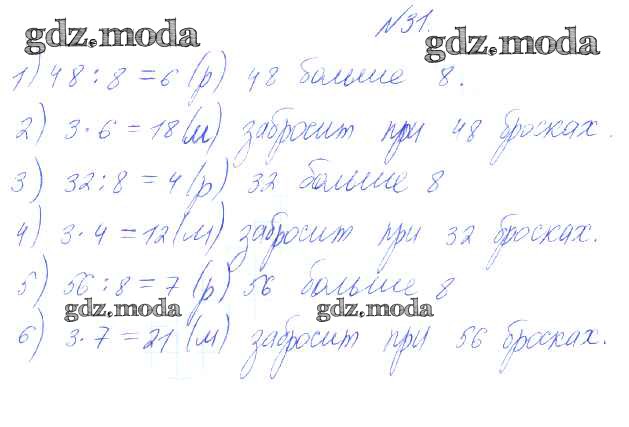 №31.
gdz.moda
gdz.moda
1) 48 : 8 = 6 (р) 48 больше 8.
2) 3 · 6 = 18 (м) забросит при 48 бросках.
3) 32 : 8 = 4 (р) 32 больше 8
4) 3 · 4 = 12 (м) забросит при 32 бросках.
5) 56 : 8 = 7 (р) 56 больше 8
gdz.moda
gdz.moda
6) 3 · 7 = 21 (м) забросит при 56 бросках.